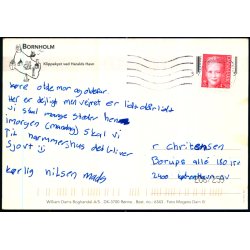 BORNHOLM
Klippekyst ved Haralds Havn
kære oldemor og oldefar
Her er dejligt men vejret er lidt
vi skal mange steder hen
imorgen (mandag) skal vi
til hammershus det bliver
sjovt
kærlig nilsen mads
r christensen
Borups allé
2400 københavn nv
William Dams Boghandel A/S - DK-3700 Rønne